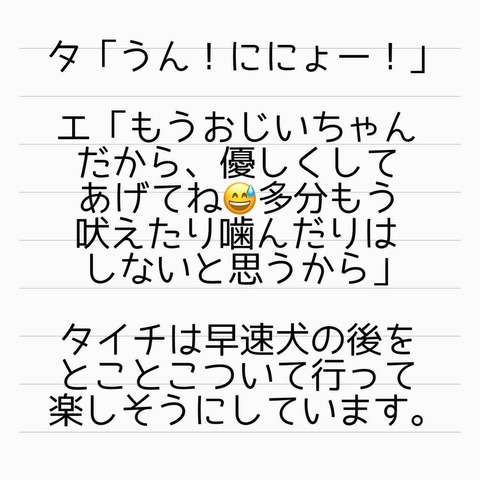 タ「うん！ににょー！」
エ「もうおじいちゃん
だから、優しくして
あげてね😅多分もう
吠えたり噛んだりは
しないと思うから」
タイチは早速犬の後を
とことこついて行って
楽しそうにしています。